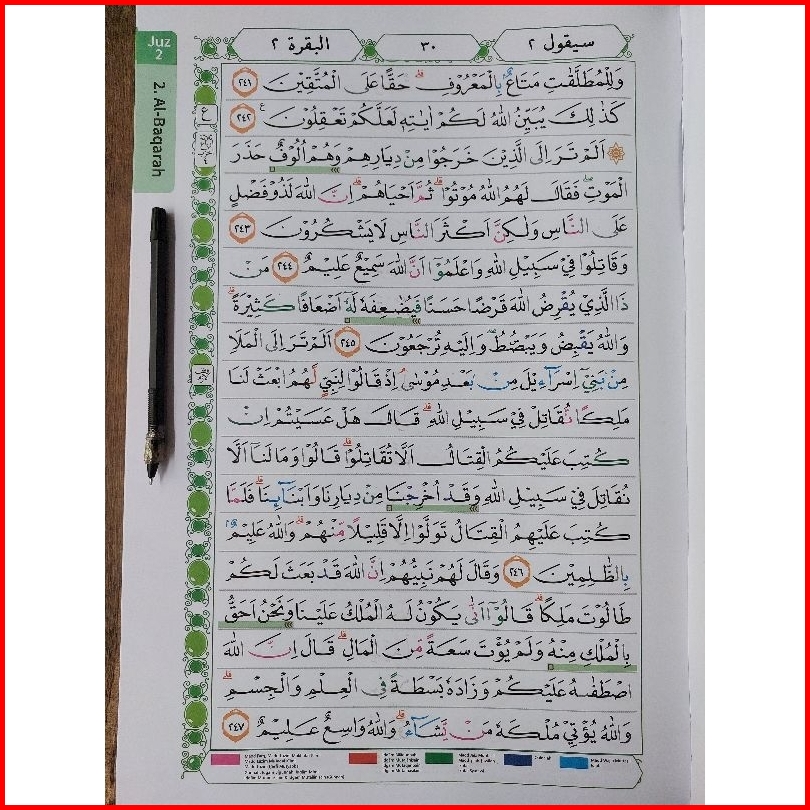 Juz
2
2. Al-Baqarah
سيقول ٢
٣٠
البقرة ٢
وَلِلْمُطَلَّقٰتِ مَتَاعٌۢ بِالْمَعْرُوْفِۗ حَقًّا عَلَى الْمُتَّقِيْنَ ٢٤١
كَذٰلِكَ يُبَيِّنُ اللّٰهُ لَكُمْ اٰيٰتِهٖ لَعَلَّكُمْ تَعْقِلُوْنَ ࣖ ٢٤٢
۞ اَلَمْ تَرَ اِلَى الَّذِيْنَ خَرَجُوْا مِنْ دِيَارِهِمْ وَهُمْ اُلُوْفٌ حَذَرَ
الْمَوْتِۖ فَقَالَ لَهُمُ اللّٰهُ مُوْتُوْاۗ ثُمَّ اَحْيَاهُمْۗ اِنَّ اللّٰهَ لَذُوْ فَضْلٍ
عَلَى النَّاسِ وَلٰكِنَّ اَكْثَرَ النَّاسِ لَا يَشْكُرُوْنَ ٢٤٣
وَقَاتِلُوْا فِيْ سَبِيْلِ اللّٰهِ وَاعْلَمُوْٓا اَنَّ اللّٰهَ سَمِيْعٌ عَلِيْمٌ ٢٤٤ مَنْ
ذَا الَّذِيْ يُقْرِضُ اللّٰهَ قَرْضًا حَسَنًا فَيُضٰعِفَهٗ لَهٗٓ اَضْعَافًا كَثِيْرَةًۗ
وَاللّٰهُ يَقْبِضُ وَيَبْصُۣطُۖ وَاِلَيْهِ تُرْجَعُوْنَ ٢٤٥ اَلَمْ تَرَ اِلَى الْمَلَاِ
مِنْۢ بَنِيْٓ اِسْرَاۤءِيْلَ مِنْۢ بَعْدِ مُوْسٰىۘ اِذْ قَالُوْا لِنَبِيٍّ لَّهُمُ ابْعَثْ لَنَا
مَلِكًا نُّقَاتِلْ فِيْ سَبِيْلِ اللّٰهِۗ قَالَ هَلْ عَسَيْتُمْ اِنْ
كُتِبَ عَلَيْكُمُ الْقِتَالُ اَلَّا تُقَاتِلُوْاۗ قَالُوْا وَمَا لَنَآ اَلَّا
نُقَاتِلَ فِيْ سَبِيْلِ اللّٰهِ وَقَدْ اُخْرِجْنَا مِنْ دِيَارِنَا وَاَبْنَاۤىِٕنَاۗ فَلَمَّا
كُتِبَ عَلَيْهِمُ الْقِتَالُ تَوَلَّوْا اِلَّا قَلِيْلًا مِّنْهُمْۗ وَاللّٰهُ عَلِيْمٌۢ
بِالظّٰلِمِيْنَ ٢٤٦ وَقَالَ لَهُمْ نَبِيُّهُمْ اِنَّ اللّٰهَ قَدْ بَعَثَ لَكُمْ
طَالُوْتَ مَلِكًاۗ قَالُوْٓا اَنّٰى يَكُوْنُ لَهُ الْمُلْكُ عَلَيْنَا وَنَحْنُ اَحَقُّ
بِالْمُلْكِ مِنْهُ وَلَمْ يُؤْتَ سَعَةً مِّنَ الْمَالِۗ قَالَ اِنَّ اللّٰهَ
اصْطَفٰىهُ عَلَيْكُمْ وَزَادَهٗ بَسْطَةً فِى الْعِلْمِ وَالْجِسْمِۗ
وَاللّٰهُ يُؤْتِيْ مُلْكَهٗ مَنْ يَّشَاۤءُۗ وَاللّٰهُ وَاسِعٌ عَلِيْمٌ ٢٤٧